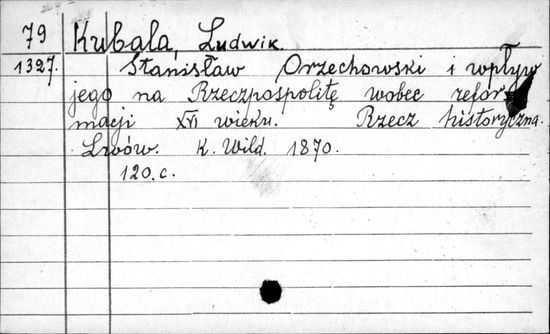 79 Kubala, Ludwik.
1327. Stanisław Orzechowski i wpływ
jego na Rzeczpospolitę wobec refor-
macji XVI wieku. Rzecz historyczna.
Lwów. K. Wild. 1870.
120. c.